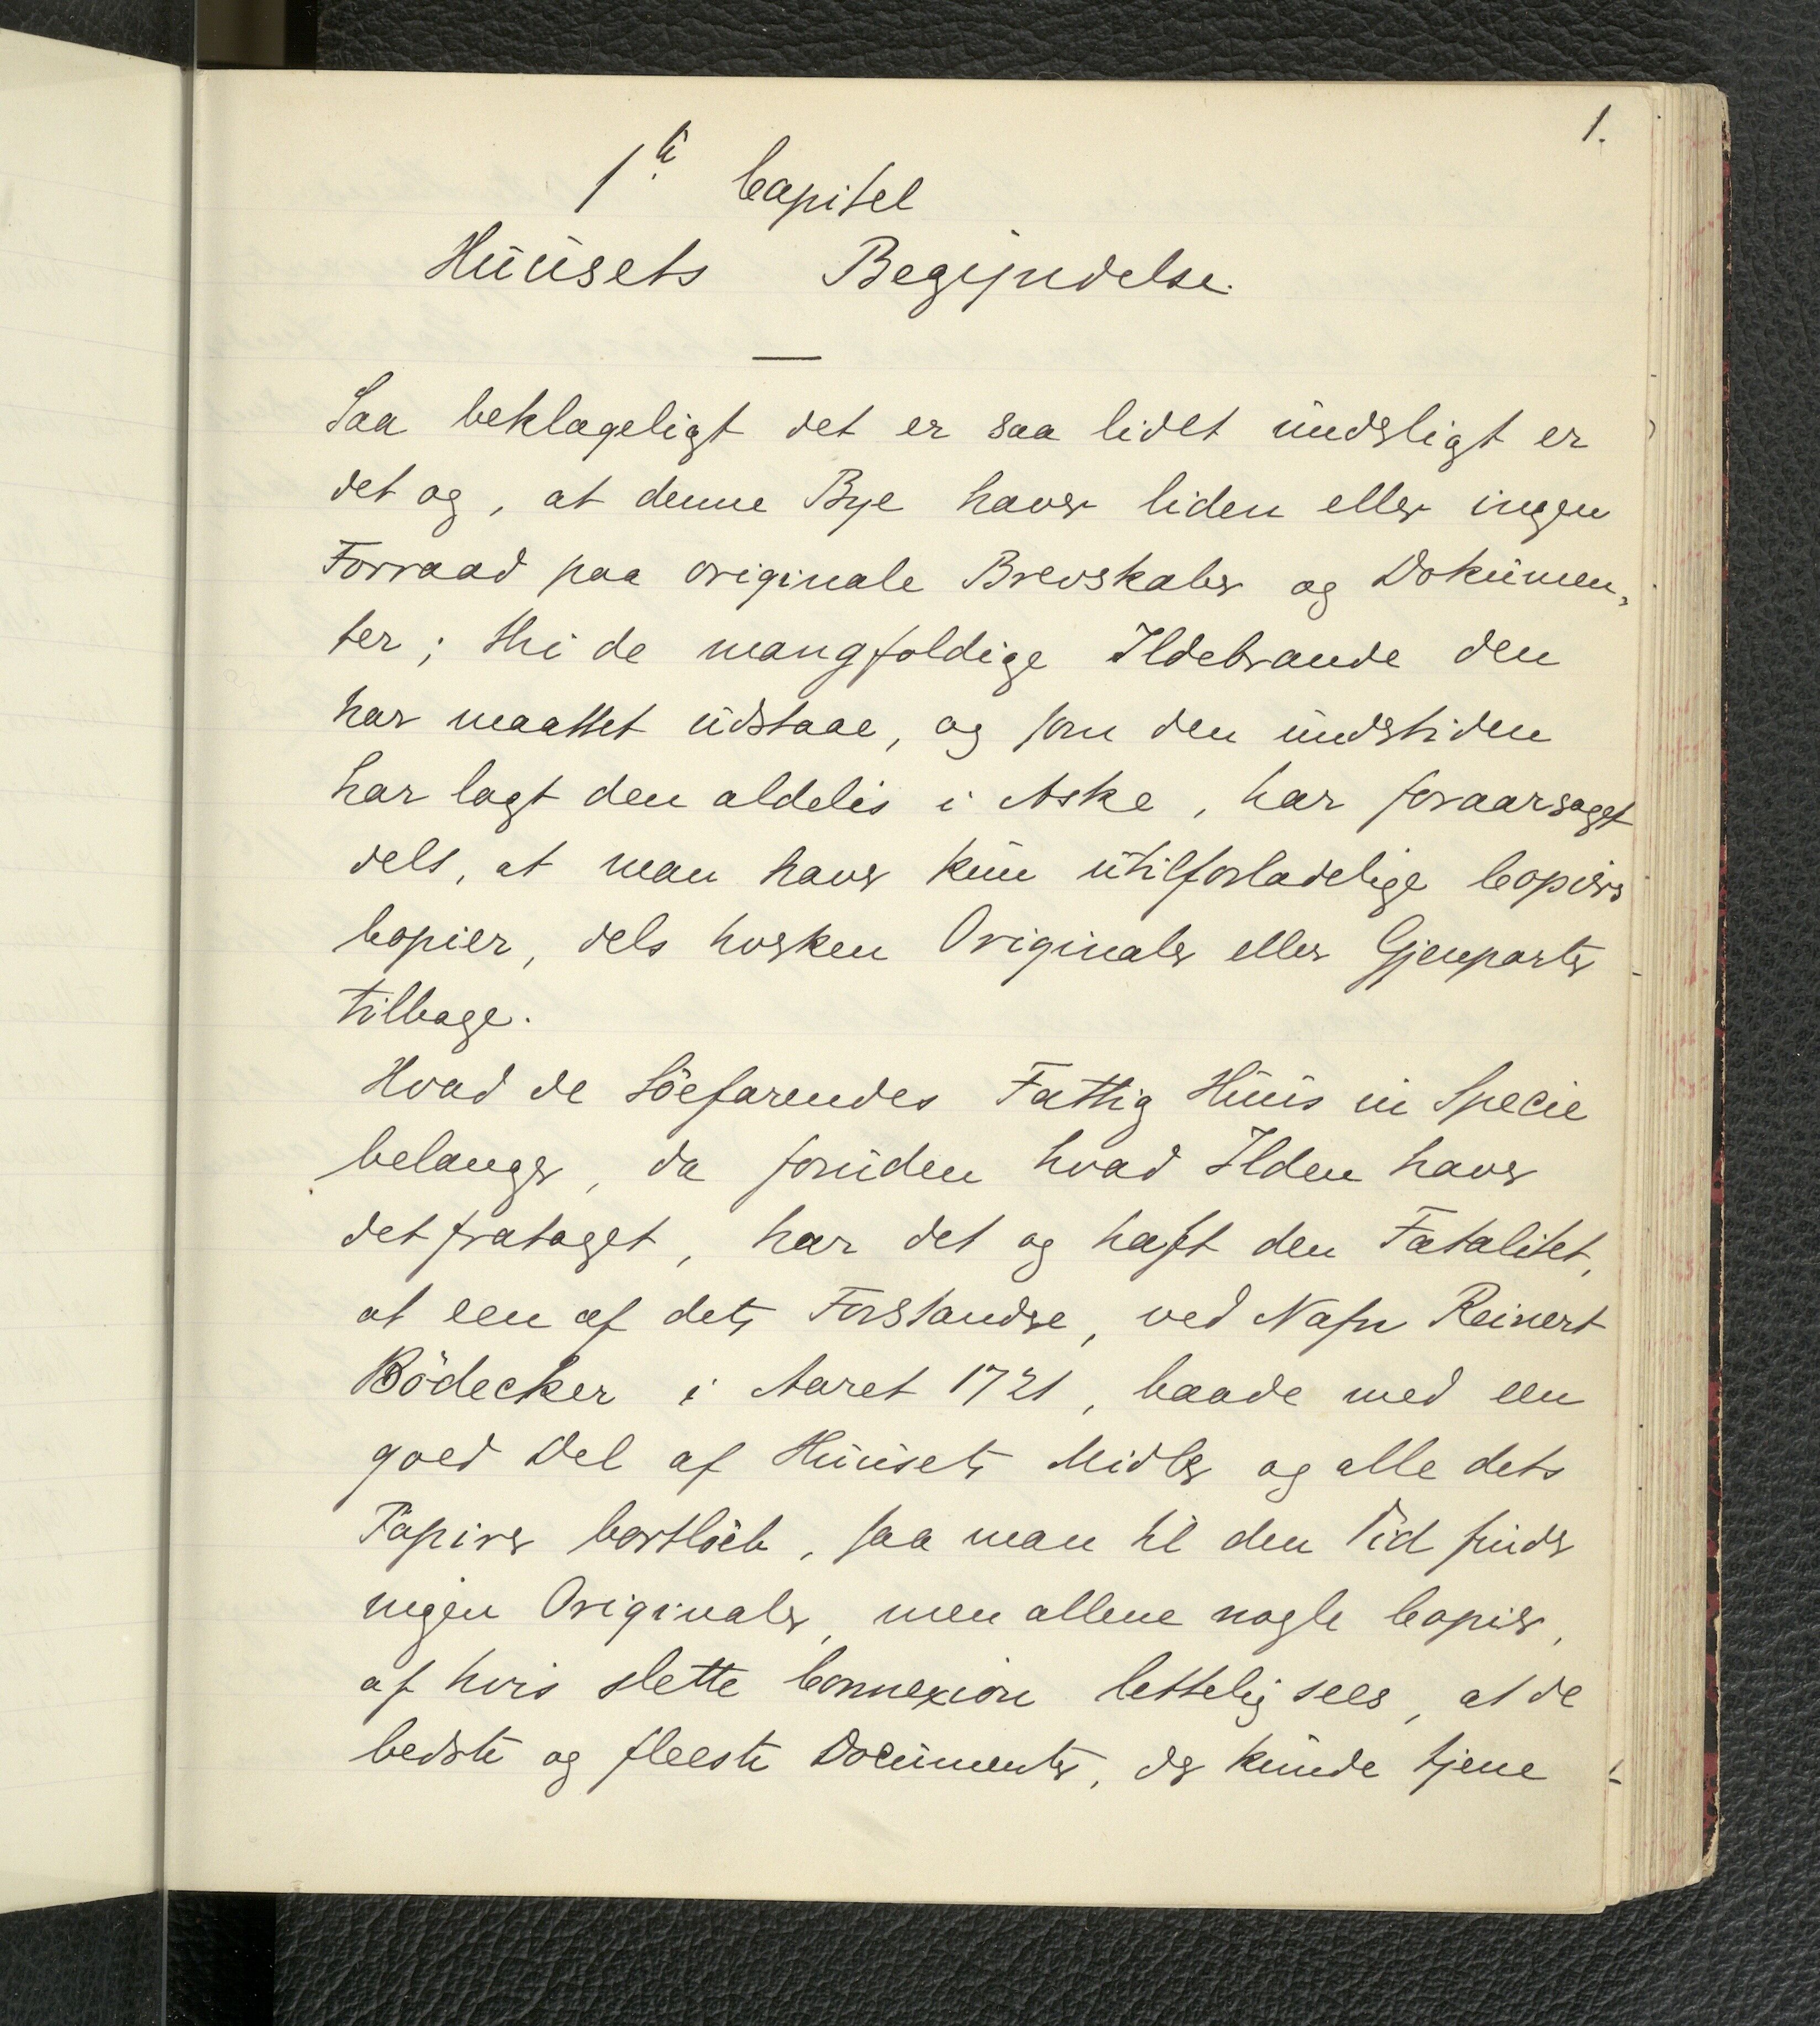 1.
1te Capitel
Huusets Begyndelse.
Saa beklageligt det er saa lidet underligt er
det og, at denne Bye haver liden eller ingen
Forraad paa originale Brevskaber og Dokumen-
ter; thi de mangfoldige Ildebrande den
har maattet udstaae, og som den undertiden
har lagt den aldelis i Aske, har foraarsaget
dels, at man haver kun utilforladelige Copiers
Copier, dels hverken Originaler eller Gjenparter
tilbage.
Hvad de Söefarendes Fattig Huus in Specie
belanger, da foruden hvad Ilden haver
det frataget, har det og haft den Fatalitet,
at een af dets Forstandre, ved Nafn Reinert
Bödecker i Aaret 1721, baade med een
goed Del af Huusets Midler og alle dets
Papirer bortlöeb, saa man til den Tid finder
ingen Originaler, men allene nogle Copier,
af hvis slette Connexion lettelig sees, at de
bedste og fleeste Documenter, der kunde tjene